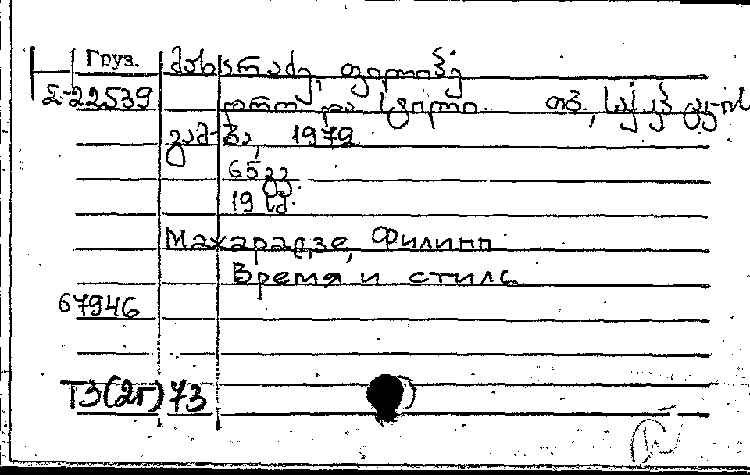 Груз. მახარაძე, ფილიპე
22539 დრო და სტილი. თბ., საქ. კპ ცკ-ის
გამ-ბა, 1979
65 გვ.
19 სმ.
Махарадзе, Филипп
Время и стиль
67946
Т3(2Г)73